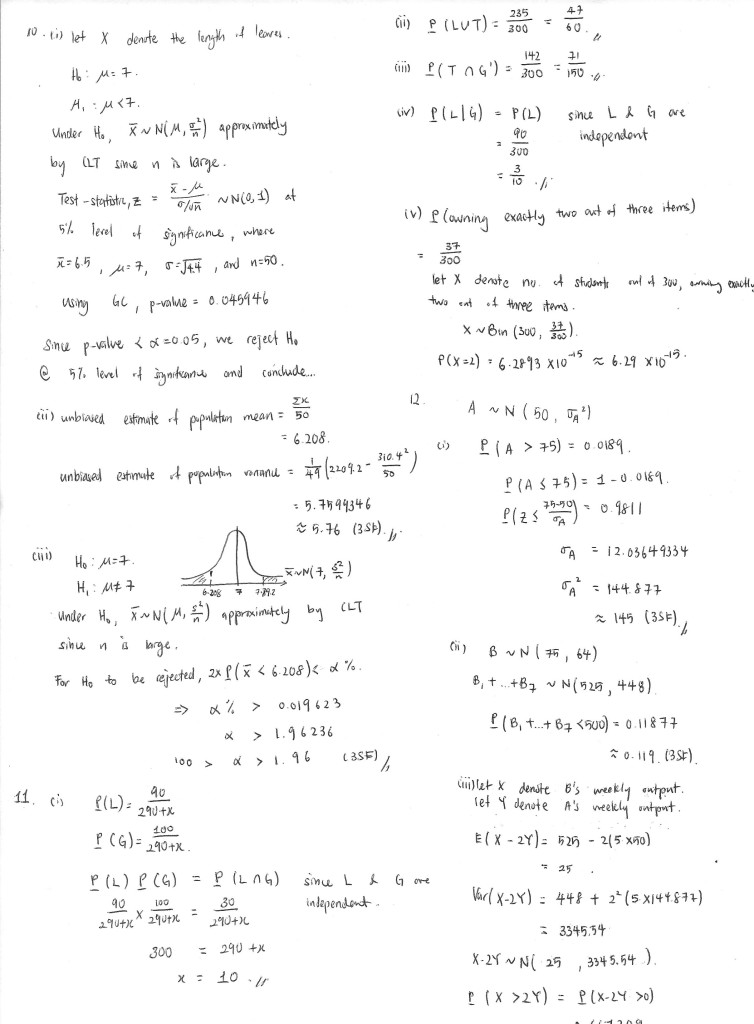 10. (i) let X denote the length of leaves.
H₀ : μ = 7.
H₁ : μ < 7.
Under H₀, X̄ ~ N(μ, σ²/n) approximately
by CLT since n is large.
Test-statistic, z = (x̄ - μ)/(σ/√n) ~ N(0, 1) at
5% level of significance, where
x̄ = 6.5, μ = 7, σ = √4.4, and n = 50.
Using GC, p-value = 0.045946
Since p-value < α = 0.05, we reject H₀
@ 5% level of significance and conclude...
(ii) unbiased estimate of population mean = Σx/50
= 6.208.
unbiased estimate of population variance = 1/49 (2209.2 - 310.4²/50)
= 5.7599346
≈ 5.76 (3SF).
(iii) H₀ : μ = 7.
H₁ : μ ≠ 7
6.208 7 7.792
X̄ ~ N(7, s²/n)
Under H₀, X̄ ~ N(μ, s²/n) approximately by CLT
since n is large.
For H₀ to be rejected, 2x P(x̄ < 6.208) < α %.
⇒ α % > 0.019623
α > 1.96236
100 > α > 1.96 (3SF)
11. (i) P(L) = 90/(290+x)
P(G) = 100/(290+x).
P(L) P(G) = P(L ∩ G) since L & G are
independent.
90/(290+x) × 100/(290+x) = 30/(290+x)
300 = 290 + x
x = 10.
(ii) P(L∪T) = 235/300 = 47/60.
(iii) P(T ∩ G') = 142/300 = 71/150.
(iv) P(L|G) = P(L) since L & G are
independent
= 90/300
= 3/10.
(v) P(owning exactly two out of three items)
= 37/300
let X denote no. of students out of 300, owning exactly
two out of three items.
X ~ Bin (300, 37/300).
P(X=2) = 6.2893 × 10⁻¹⁵ ≈ 6.29 × 10⁻¹⁵.
12. A ~ N(50, σ_A²)
(i) P(A > 75) = 0.0189.
P(A ≤ 75) = 1 - 0.0189.
P(Z ≤ (75-50)/σ_A) = 0.9811
σ_A = 12.03649334
σ_A² = 144.877
≈ 145 (3SF).
(ii) B ~ N(75, 64)
B₁ + ... + B₇ ~ N(525, 448)
P(B₁ + ... + B₇ < 500) = 0.11877
≈ 0.119. (3SF).
(iii) let X denote B's weekly output.
let Y denote A's weekly output.
E(X - 2Y) = 525 - 2(5 × 50)
= 25.
Var(X-2Y) = 448 + 2²(5 × 144.877)
= 3345.54
X-2Y ~ N(25, 3345.54).
P(X > 2Y) = P(X-2Y > 0)